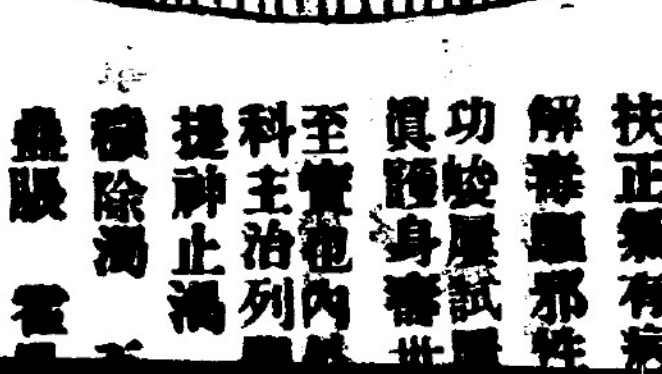 扶正氣有病
解毒驅邪性
功峻屢試屢
眞護身濟世
至寶也內外
科主治列
提神止渴
穢除濁
蠱脹 霍